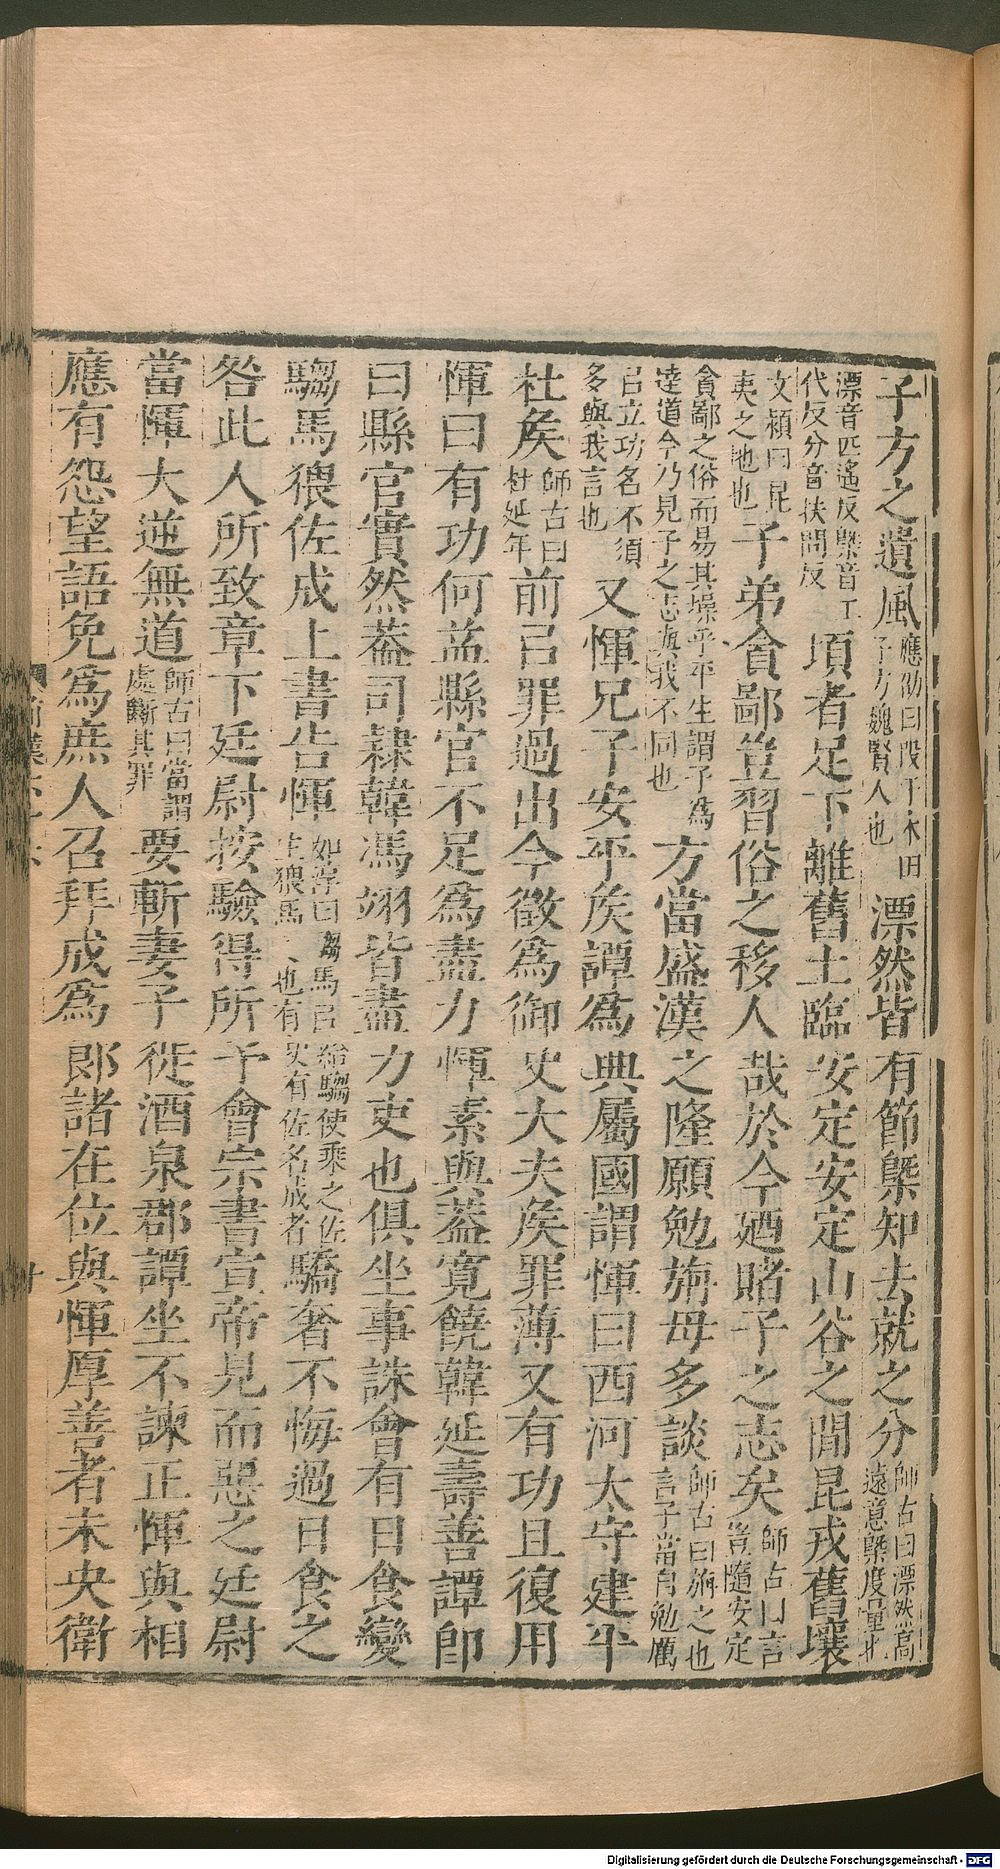 子方之遺風應劭曰段干木田子方魏賢人也漂然皆有節槩知去就之分師古曰漂然高遠意槩度量也
漂音匹遙反槩音工代反分音扶問反頃者足下離舊土臨安定安定山谷之間昆戎舊壤
文穎曰昆夷之地也子弟貪鄙豈習俗之移人哉於今廼睹子之志矣師古曰言豈隨安定
貪鄙之俗而易其操乎平生謂子為達道今乃見子之志與我不同也方當盛漢之隆願勉旃毋多談師古曰旃之也言子當自勉厲
㠯立功名不須多與我言也又惲兄子安平矦譚爲典屬國謂惲曰西河太守建平
杜矦師古曰杜延年前㠯罪過出今徵爲御史大夫矦罪薄又有功且復用
惲曰有功何益縣官不足爲盡力惲素與蓋寬饒韓延壽善譚卽
曰縣官實然蓋司隸韓馮翊皆盡力吏也俱坐事誅會有日食變
騶馬猥佐成上書告惲如淳曰騶馬㠯給騶使乘之佐主猥馬吏也有吏有佐名成者驕奢不悔過日食之
咎此人所致章下廷尉按驗得所予會宗書宣帝見而惡之廷尉
當惲大逆無道師古曰當謂處斷其罪要斬妻子徙酒泉郡譚坐不諫正惲與相
應有怨望語免爲庶人召拜成爲郎諸在位與惲厚善者未央衛
Digitalisierung gefördert durch die Deutsche Forschungsgemeinschaft - DFG